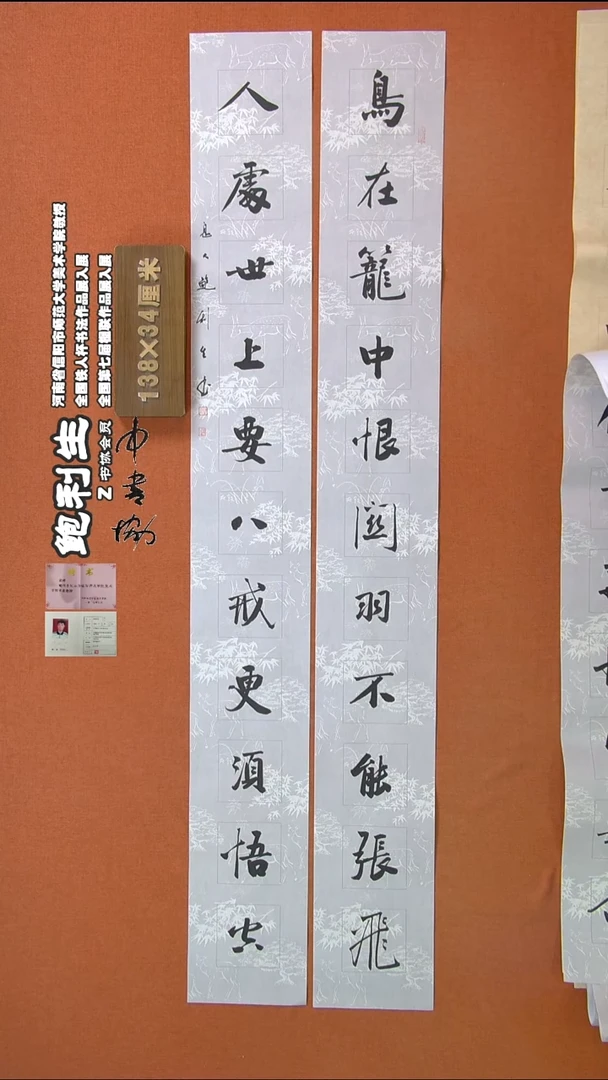 鳥在籠中恨關羽不能張飛
人處世上要八戒更須悟空
鮑利生书
138×34厘米
河南省信阳市师范大学美术学院教授
全国铁人杯书法作品展入展
全国第七届楹联作品展入展
鲍利生
Z 书协会员
中書協